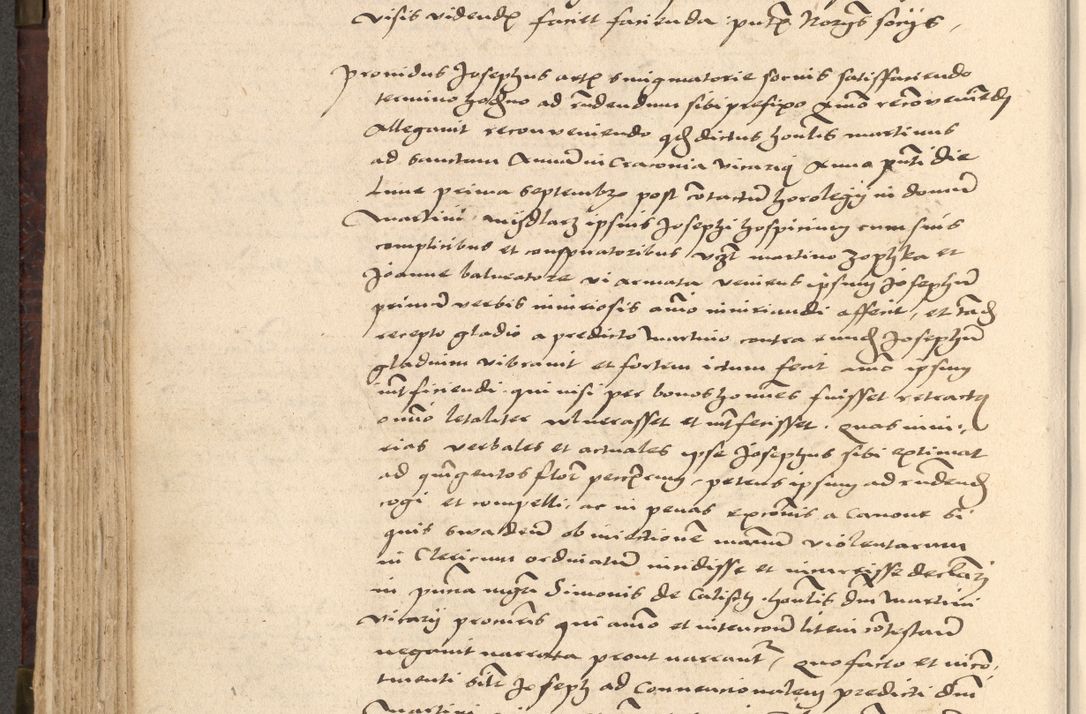 visis videndis faciet facienda pntibus Norgs socijs,
Providus Josephus artis smigmatorie socius satisfaciendo
termino hodierno ad rñdendum sibi prefixo animo reconveniendi
Allegavit reconveniendo qd dictus honlis martinus
ad sanctum Annam in Cracovia vicarius Anno pnti die
Lune prima septembris post contactum horologij in domum
Martini ipsius Josephi hospicium cum suis
complicibus et conspiratoribus vzt martino zophka et
Joanne balneatore vi armata veniens ipsum Josephum
primum verbis iniuriosis animo iniuriandi affecit, et tandem
recepto gladio a predicto Martino contra eundem Josephum
gladium vibravit et fortem ictum fecit animo ipsum
interficiendi qui nisi per bonos homines fuisset retractus
omnino letaliter vulnerasset et interfecisset. quas iniu-
rias verbales et actuales ipse Josephus sibi extimat
ad quingentos flor petens ipsum ad rñdendum
cogi et compelli, ac in penas exconis a Canone Si
quis suadente ob iniectionem manuum violentarum
in Clericum ordinatum incidisse et incurrisse declarari
in pñtia mgri Simonis de Calisch honlis dni Martini
vicarij procuris qui animo et intencione litem contestandi
negavit narrata prout narrantur, Quo facto et nico-
tinenti Josephus ad Convencionalem predicti dni
Martini